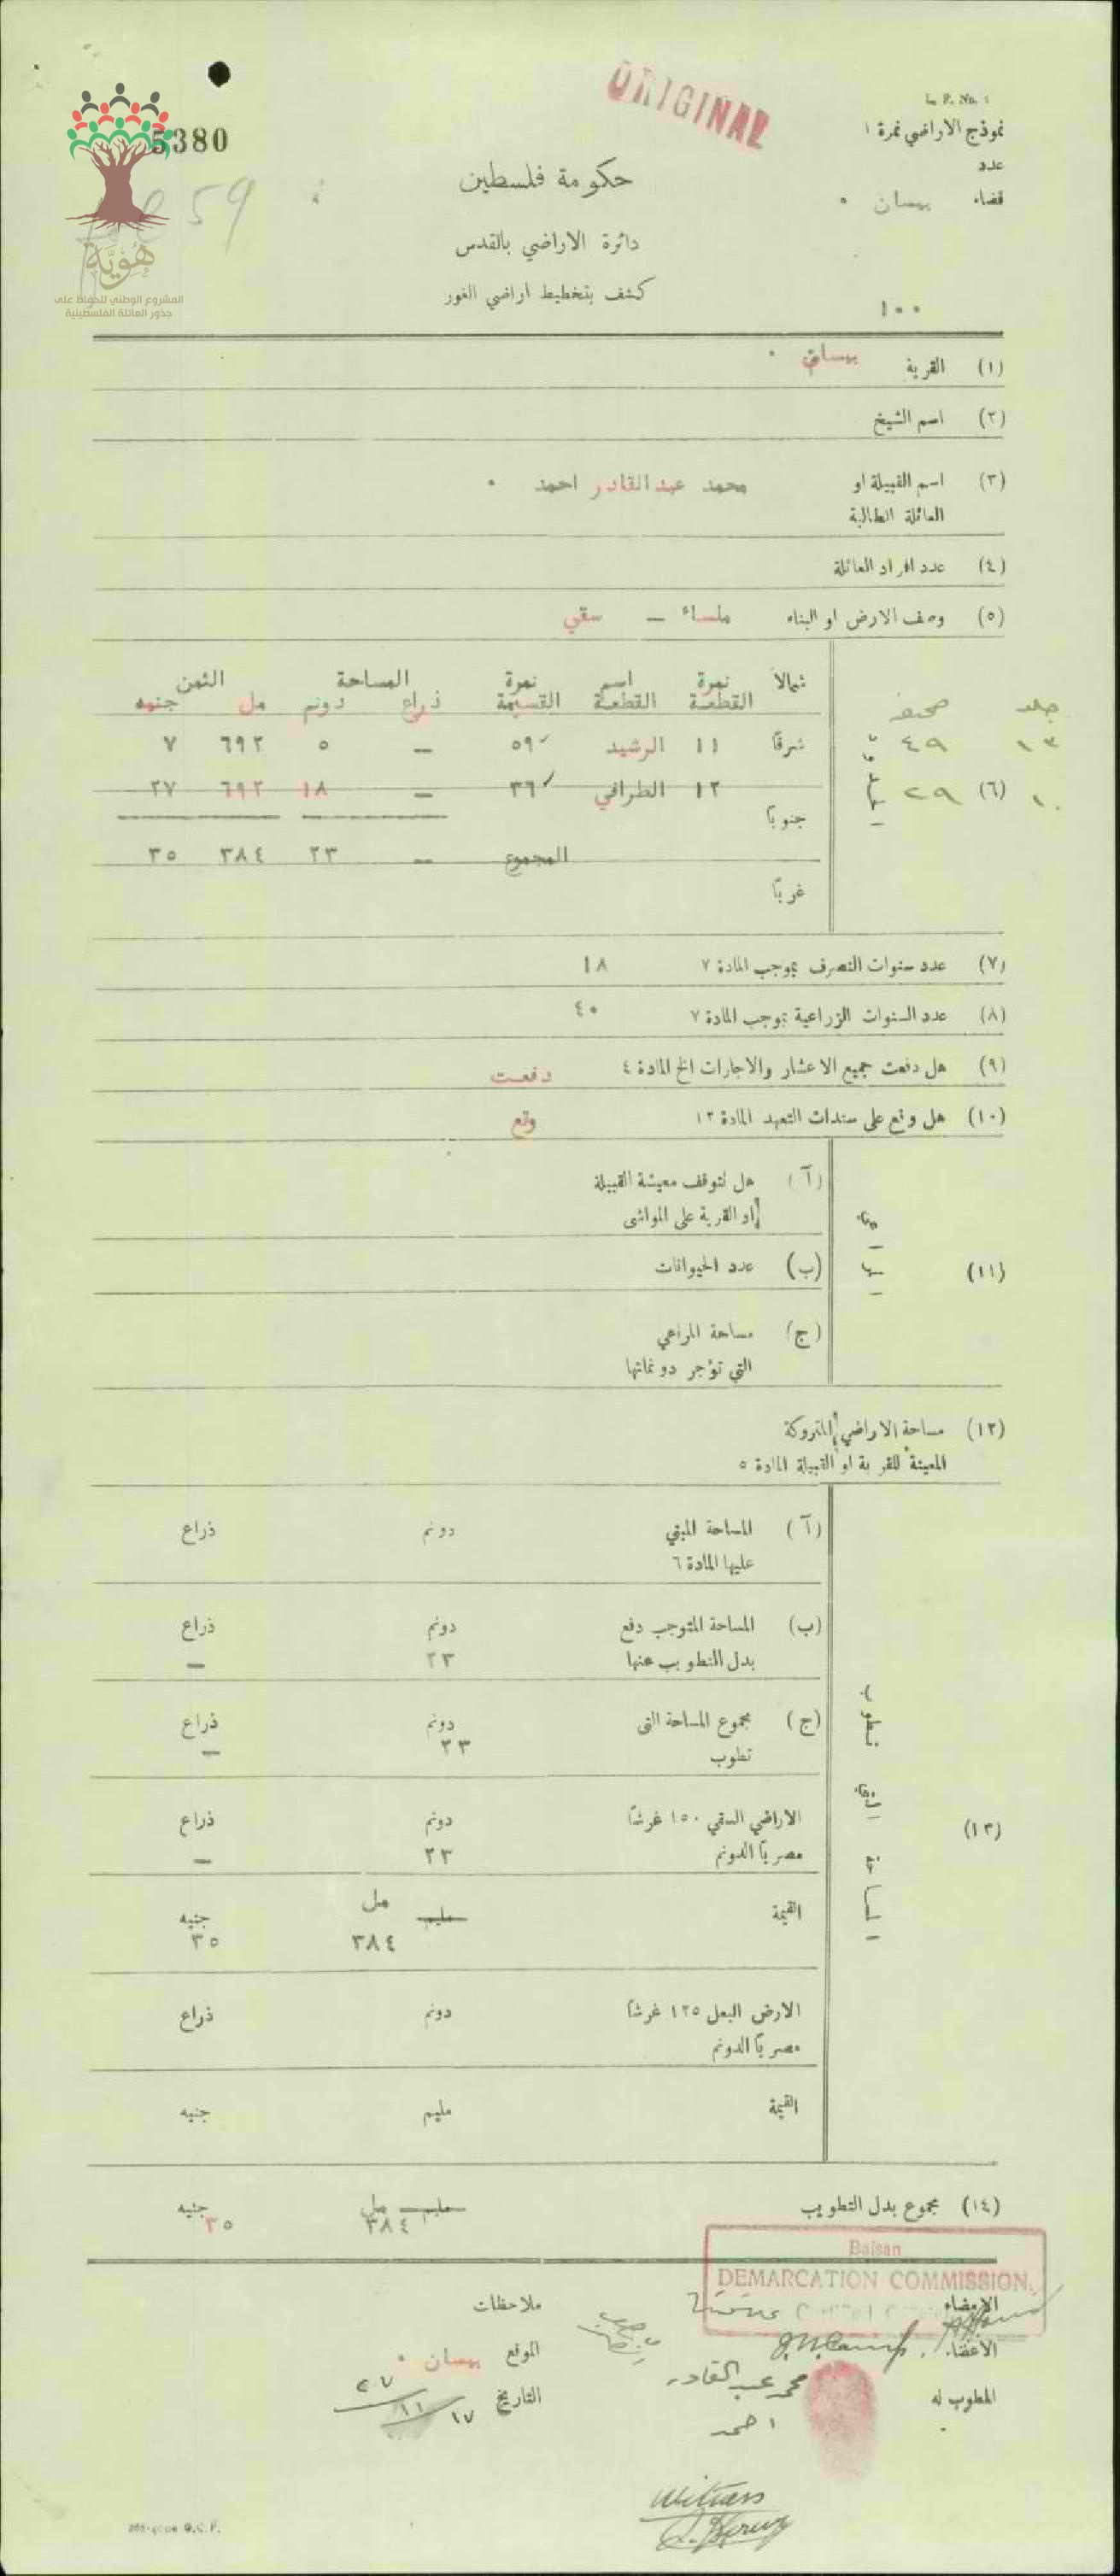 ORIGINAL
L. P. No. 1
نموذج الاراضي نمرة ١
5380
عدد
قضاء بيسان
حكومة فلسطين
دائرة الاراضي بالقدس
كشف بتخطيط اراضي الغور
هُوِيَّة
المشروع الوطني للحفاظ على
جذور العائلة الفلسطينية
١٠٠
(١) القرية بيسان
(٢) اسم الشيخ
(٣) اسم القبيلة او محمد عبد القادر احمد
العائلة الطالبة
(٤) عدد افراد العائلة
(٥) وصف الارض او البناء ملساء – سقي
شمالاً نمرة اسم نمرة المساحة الثمن
القطعة القطعة القسيمة ذراع دونم مل جنيه
جلد صحيفه
١٣ ٤٩ شرقاً ١١ الرشيد ٥٩ – ٥ ٦٩٢ ٧
١٠ (٦) ٢٩ الحدود ١٢ الطرافي ٣٦ – ١٨ ٦٩٢ ٢٧
جنوباً
المجموع – ٢٣ ٣٨٤ ٣٥
غرباً
(٧) عدد سنوات التصرف بموجب المادة ٧ ١٨
(٨) عدد السنوات الزراعية بموجب المادة ٧ ٤٠
(٩) هل دفعت جميع الاعشار والاجارات الخ المادة ٤ دفعت
(١٠) هل وقع على سندات التعهد المادة ١٣ وقع
(آ) هل تتوقف معيشة القبيلة
او القرية على المواشي
(١١) (ب) عدد الحيوانات
(ج) مساحة المراعي
التي تؤجر دونماتها
(١٢) مساحة الاراضي المتروكة
المعينة للقرية او القبيلة المادة ٥
(آ) المساحة المبني دونم ذراع
عليها المادة ٦
(ب) المساحة المتوجب دفع دونم ذراع
بدل التطويب عنها ٢٣ –
(ج) مجموع المساحة التي دونم ذراع
تطوب ٢٣ –
(١٣) الاراضي السقي ١٥٠ غرشاً دونم ذراع
مصرياً الدونم ٢٣ –
القيمة مليم مل جنيه
٣٨٤ ٣٥
الارض البعل ١٢٥ غرشاً دونم ذراع
مصرياً الدونم
القيمة مليم جنيه
(١٤) مجموع بدل التطويب مليم مل جنيه
٣٨٤ ٣٥
Baisan
DEMARCATION COMMISSION.
الامضاء
ملاحظات
الاعضاء
الموقع بيسان
المطوب له محمد عبد القادر
احمد
التاريخ ١٧/١١/٢٧
Witness